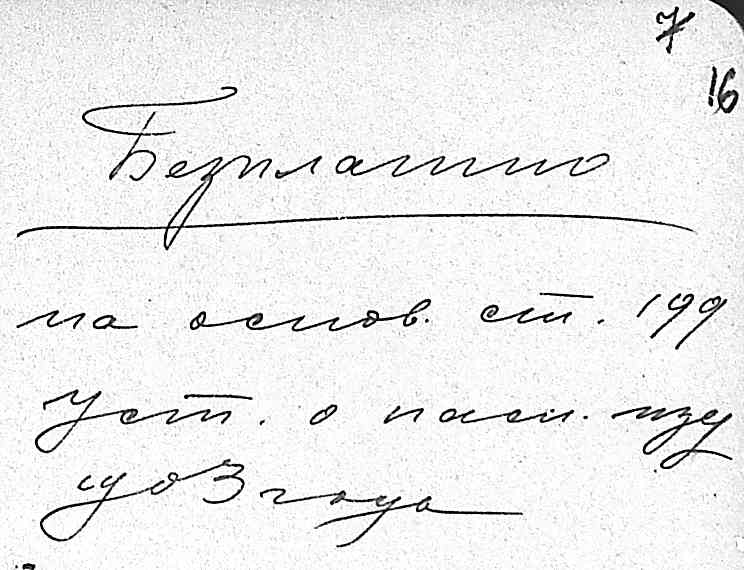 7
16
Безплатно
на основ. ст. 199
Уст. о пасп. изд
1903 года